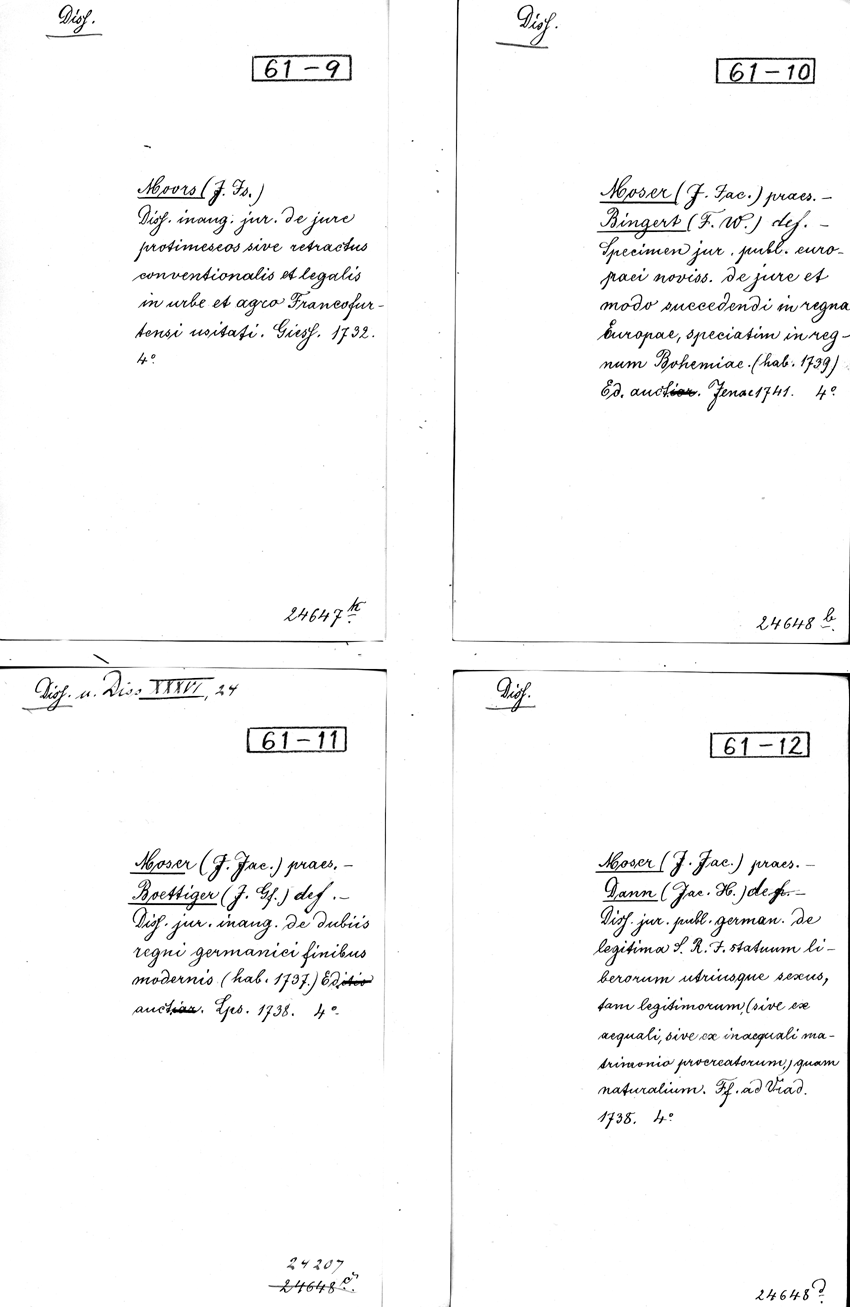 Diss.
61-9
Moors (J. Is.)
Diss. inaug. jur. de jure
protimeseos sive retractus
conventionalis et legalis
in urbe et agro Francofur-
tensi usitati. Giess. 1732.
4º
24647 k.
Diss.
61-10
Moser (J. Jac.) praes. -
Bingert (F. W.) def. -
Specimen jur. publ. euro-
paei noviss. de jure et
modo succedendi in regna
Europae, speciatim in reg-
num Bohemiae. (hab. 1739)
Ed. auctior. Jenae 1741. 4º
24648 b.
Diss. u. Diss XXXVI, 24
61-11
Moser (J. Jac.) praes. -
Boettiger (J. Gf.) def. -
Diss. jur. inaug. de dubiis
regni germanici finibus
modernis (hab. 1737.) Editio
auctior. Lps. 1738. 4º
24207
24648 c.
Diss.
61-12
Moser (J. Jac.) praes. -
Dann (Jac. H.) def. -
Diss. jur. publ. german. de
legitima S. R. I. statuum li-
berorum utriusque sexus,
tam legitimorum, (sive ex
aequali, sive ex inaequali ma-
trimonio procreatorum,) quam
naturalium. Ff. ad Viad.
1738. 4º
24648 d.